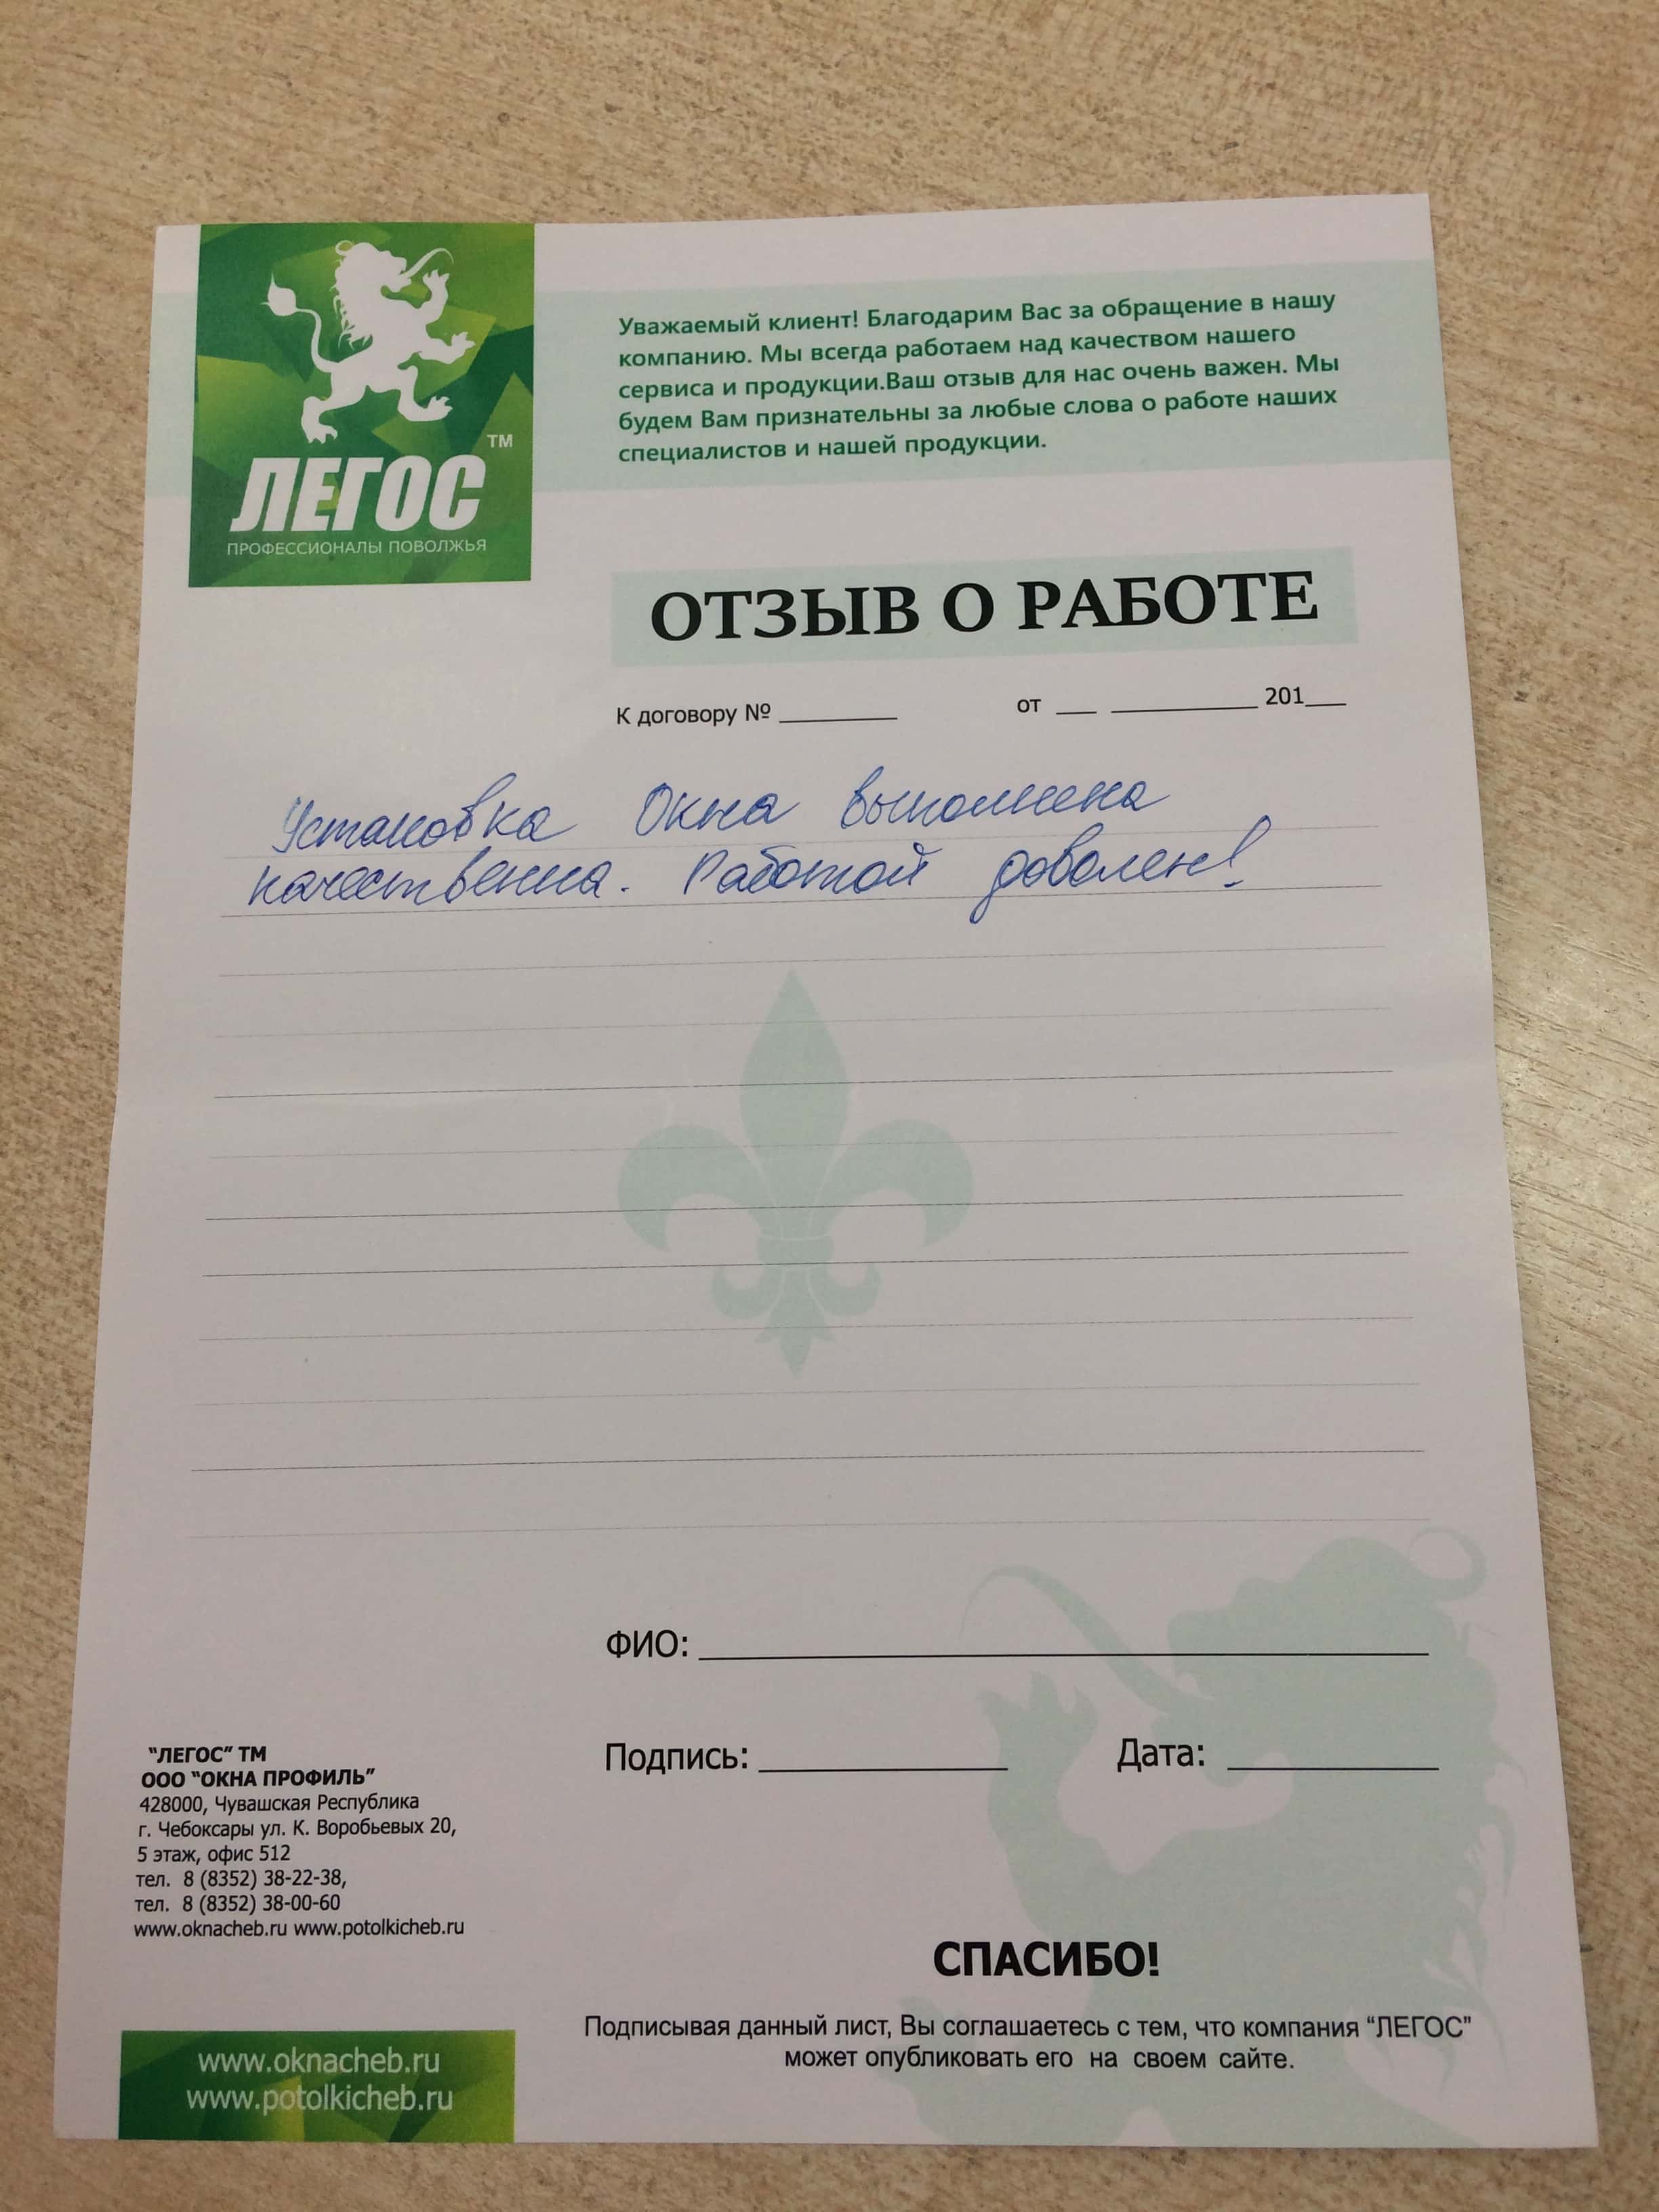 ЛЕГОС™
ПРОФЕССИОНАЛЫ ПОВОЛЖЬЯ
Уважаемый клиент! Благодарим Вас за обращение в нашу
компанию. Мы всегда работаем над качеством нашего
сервиса и продукции.Ваш отзыв для нас очень важен. Мы
будем Вам признательны за любые слова о работе наших
специалистов и нашей продукции.
ОТЗЫВ О РАБОТЕ
К договору № ________ от ___ __________ 201___
Установка Окна выполнена
качественна. Работой доволен!
ФИО:
Подпись: ____________ Дата: ____________
"ЛЕГОС" ТМ
ООО "ОКНА ПРОФИЛЬ"
428000, Чувашская Республика
г. Чебоксары ул. К. Воробьевых 20,
5 этаж, офис 512
тел. 8 (8352) 38-22-38,
тел. 8 (8352) 38-00-60
www.oknacheb.ru www.potolkicheb.ru
СПАСИБО!
Подписывая данный лист, Вы соглашаетесь с тем, что компания "ЛЕГОС"
может опубликовать его на своем сайте.
www.oknacheb.ru
www.potolkicheb.ru